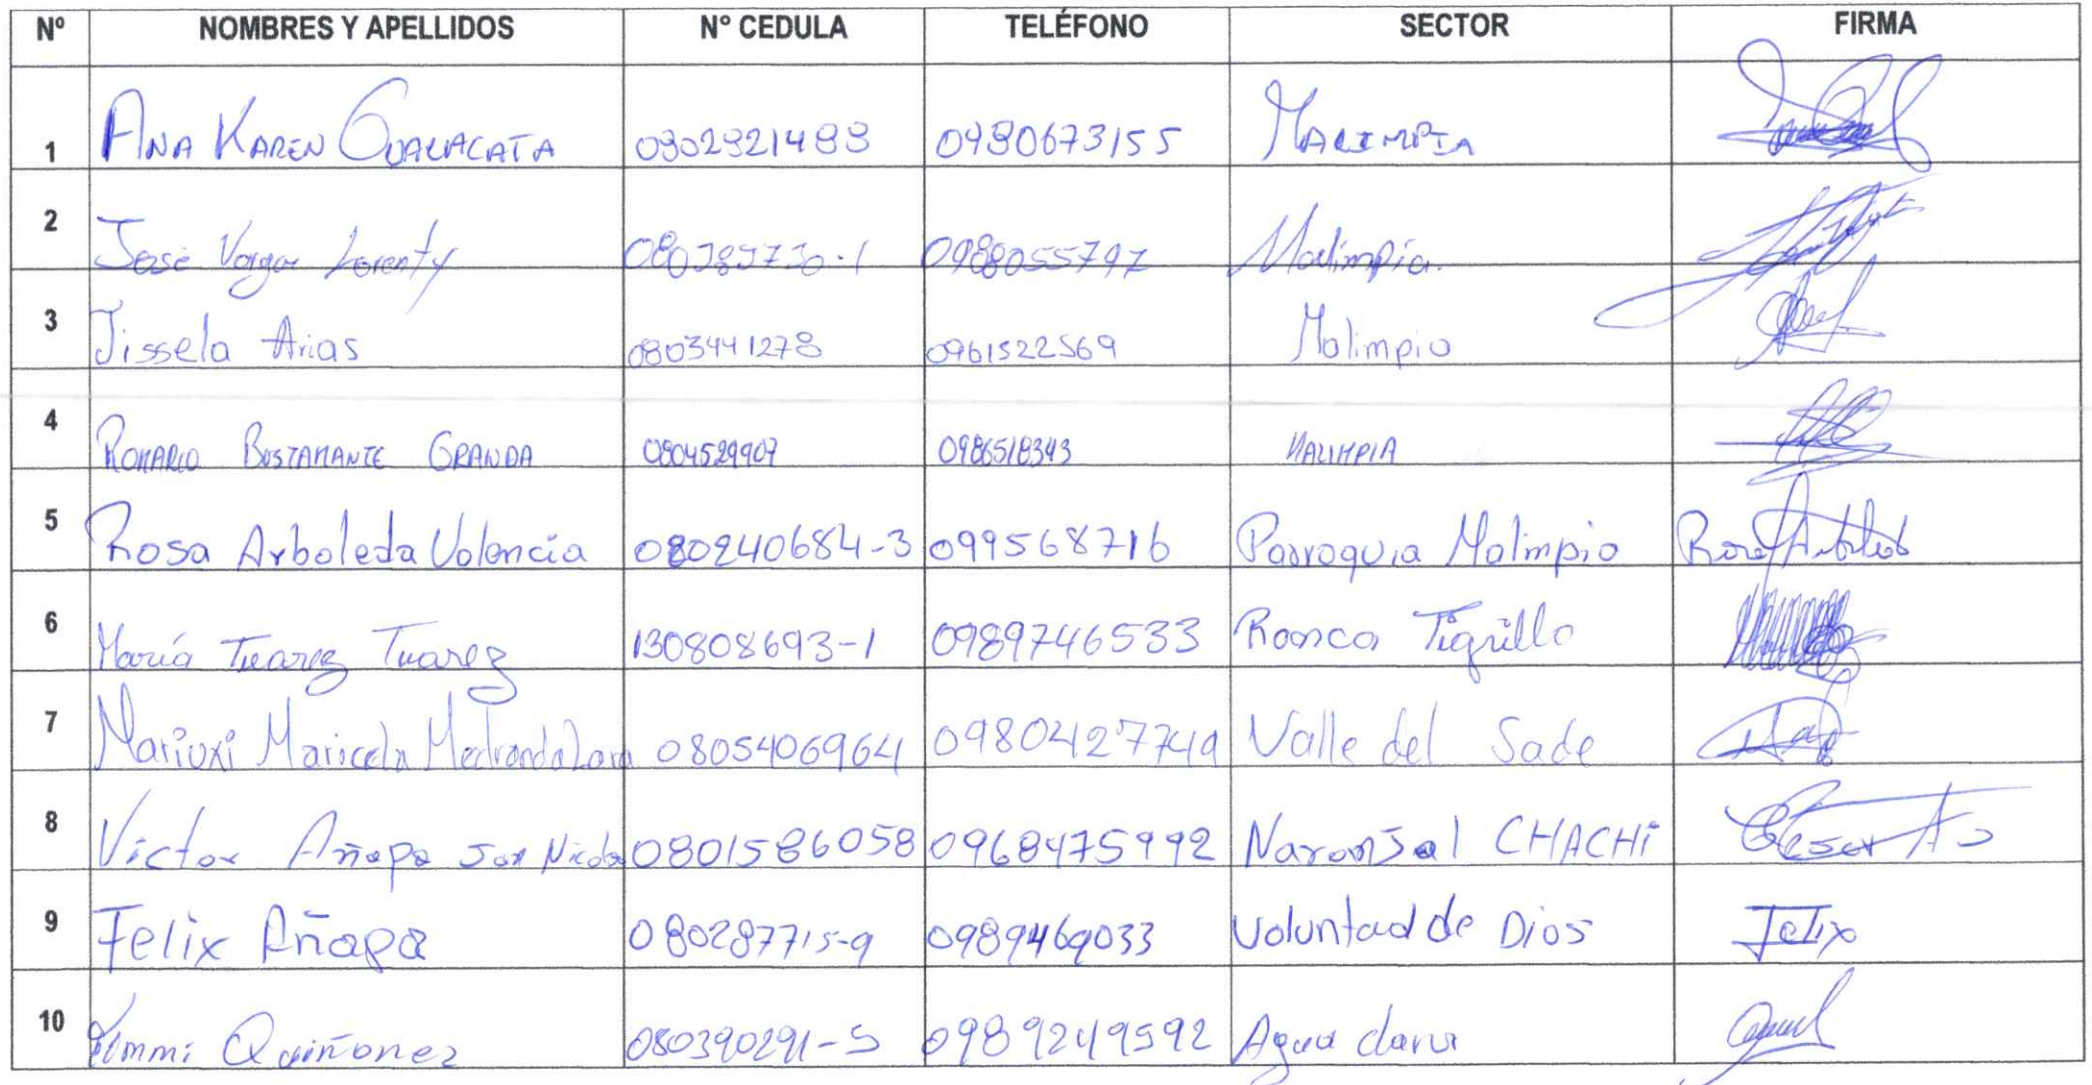 Nº NOMBRES Y APELLIDOS Nº CEDULA TELÉFONO SECTOR FIRMA
1 ANA KAREN GUALACATA 0302321483 0980673155 MALIMPIA
2 José Vargas Lorenty Malimpia.
3 Jissela Arias 0803441278 0961522569 Malimpia
4 ROMARIO BUSTAMANTE GRANDA 0804529907 0986518343 MALIMPIA
5 Rosa Arboleda Valencia 080240684-3 099568716 Parroquia Malimpia
6 María Tuarez Tuarez 130808693-1 0989746533 Tigrillo
7 Mariuxi Maricela Lara 0805406964 0980427749 Valle del Sade
8 Victor Añapa San Nicolas 0801586058 0968475992 Naranjal CHACHi
9 Felix Añapa 080287715-9 0989469033 Voluntad de Dios Felix
10 Quiñonez 080390291-5 0989249592 Agua clara